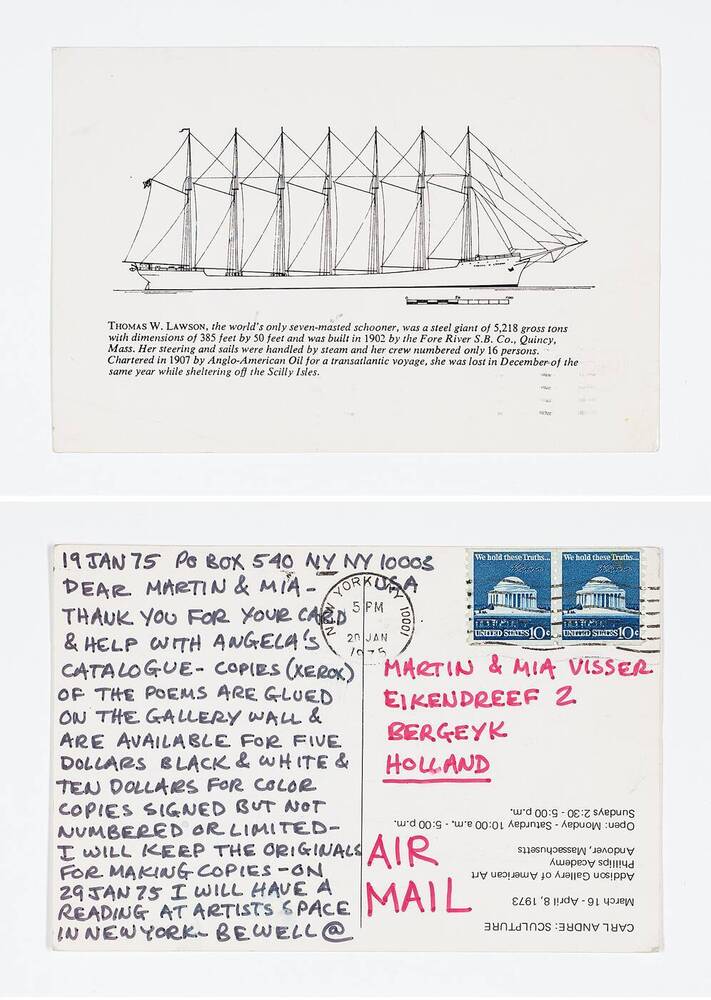 THOMAS W. LAWSON, the world's only seven-masted schooner, was a steel giant of 5,218 gross tons
with dimensions of 385 feet by 50 feet and was built in 1902 by the Fore River S.B. Co., Quincy,
Mass. Her steering and sails were handled by steam and her crew numbered only 16 persons.
Chartered in 1907 by Anglo-American Oil for a transatlantic voyage, she was lost in December of the
same year while sheltering off the Scilly Isles.
19 JAN 75 PO BOX 540 NY NY 10003
USA
DEAR MARTIN & MIA -
THANK YOU FOR YOUR CARD
& HELP WITH ANGELA'S
CATALOGUE - COPIES (XEROX)
OF THE POEMS ARE GLUED
ON THE GALLERY WALL &
ARE AVAILABLE FOR FIVE
DOLLARS BLACK & WHITE &
TEN DOLLARS FOR COLOR
COPIES SIGNED BUT NOT
NUMBERED OR LIMITED -
I WILL KEEP THE ORIGINALS
FOR MAKING COPIES - ON
29 JAN 75 I WILL HAVE A
READING AT ARTISTS SPACE
IN NEW YORK - BE WELL @
NEW YORK, NY 10001
5 PM
20 JAN
1975
We hold these Truths...
UNITED STATES 10c
We hold these Truths...
UNITED STATES 10c
MARTIN & MIA VISSER
EIKENDREEF 2
BERGEYK
HOLLAND
AIR
MAIL
CARL ANDRE: SCULPTURE
March 16 - April 8, 1973
Addison Gallery of American Art
Phillips Academy
Andover, Massachusetts
Open: Monday - Saturday 10:00 a.m. - 5:00 p.m.
Sundays 2:30 - 5:00 p.m.